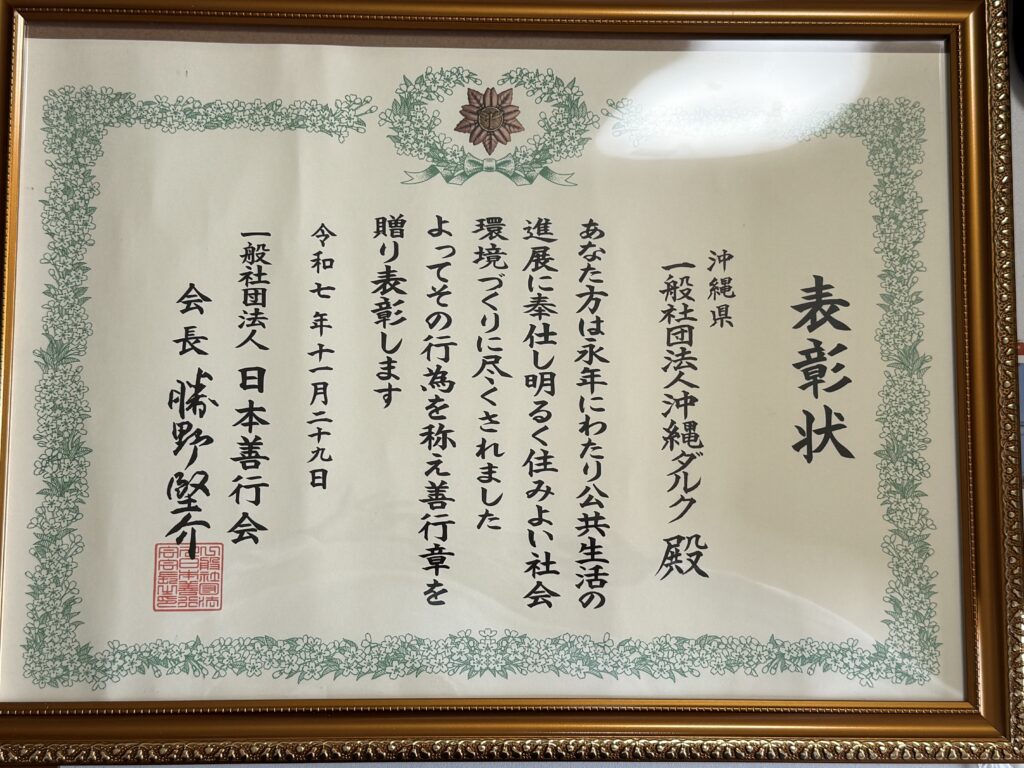 表彰状
沖縄県
一般社団法人沖縄ダルク 殿
あなた方は永年にわたり公共生活の
進展に奉仕し明るく住みよい社会
環境づくりに尽くされました
よってその行為を称え善行章を
贈り表彰します
令和七年十一月二十九日
一般社団法人 日本善行会
会長 勝野堅介